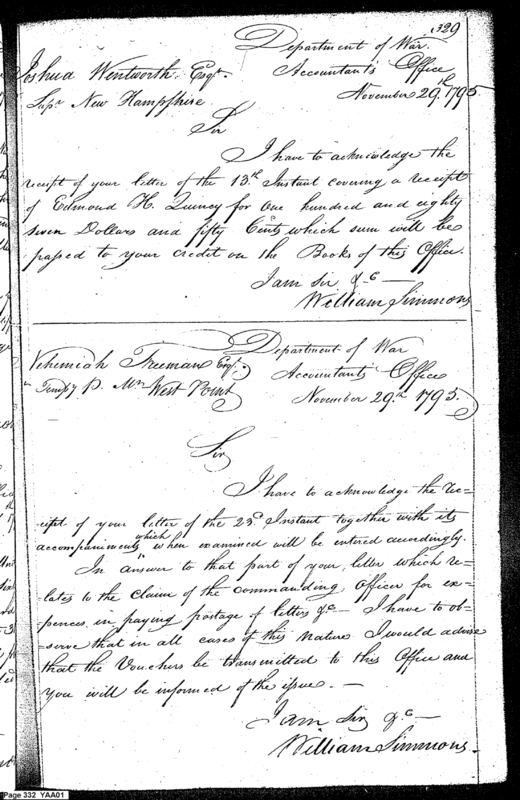 329
Department of War.
Joshua Wentworth Esqr.
Accountant's Office
Supr New Hampshire
November 29th 1795
Sir
I have to acknowledge the
receipt of your letter of the 13th Instant covering a receipt
of Edmond H. Quincy for One hundred and eighty
seven Dollars and fifty Cents which sum will be
passed to your credit on the Books of this Office.
I am Sir &c
William Simmons
Department of War
Nehemiah Freeman Esqr.
Accountants Office
Tempy P. Mr West Point
November 29th 1795.
Sir
I have to acknowledge the re-
ceipt of your letter of the 23d Instant together with its
accompaniments which when examined will be entered accordingly.
In answer to that part of your letter which re-
lates to the claim of the commanding Officer for ex-
pences in paying postage of letters &c— I have to ob-
-serve that in all cases of this nature I would advise
that the Vouchers be transmitted to this Office and
you will be informed of the issue.—
I am Sir &c—
William Simmons.
Page 332 YAA01